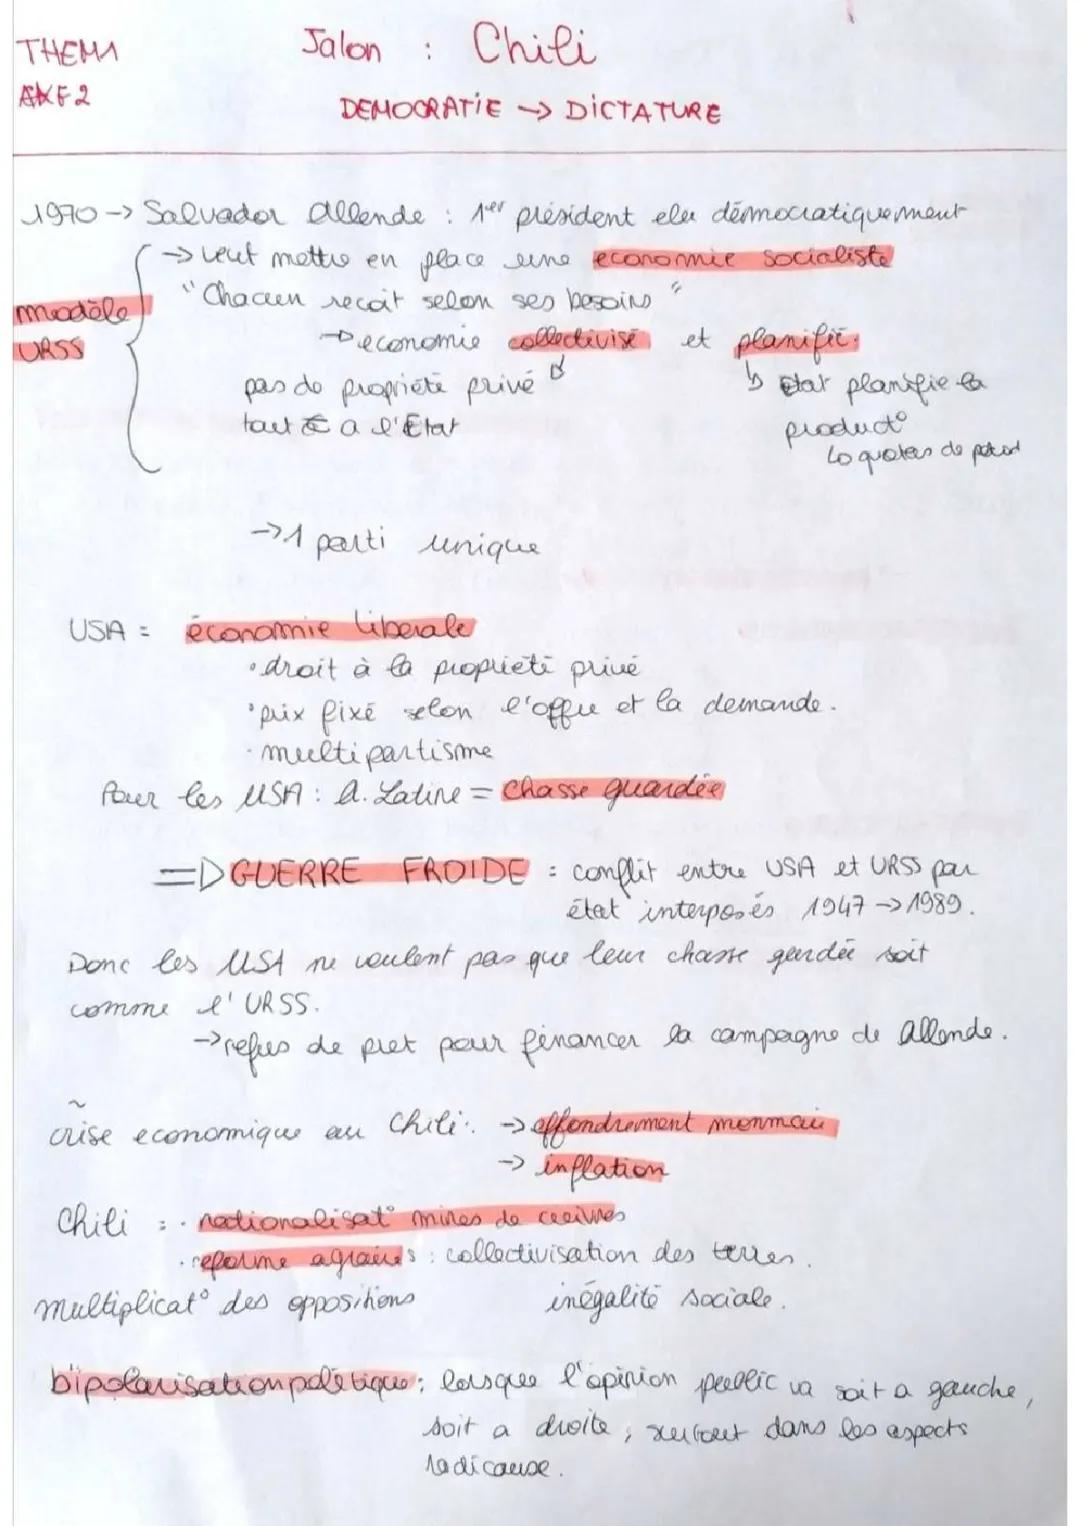 THEMA
Jalon : Chili
AXE 2
DEMOCRATIE → DICTATURE
1970 → Salvador Allende : 1er président elu démocratiquement
→ veut mettre en place une economie socialiste
"Chacun recoit selon ses besoins"
modèle
URSS
→ economie collectivisé et planifié.
pas de proprieté privé
↳ Etat planifie la
tout est a l'Etat
product°
↳ quotas de
→ 1 parti unique
USA = économie liberale
• droit à la proprieté privé
• prix fixé selon l'offre et la demande.
· multipartisme
Pour les USA : A. Latine = Chasse guardée
=> GUERRE FROIDE : conflit entre USA et URSS par
état interposés 1947 → 1989.
Donc les USA ne veulent pas que leur chasse gardée soit
comme l'URSS.
→ refus de pret pour financer la campagne de Allende.
crise economique au Chili : → effondrement monnaie
→ inflation
Chili : · nationalisat° mines de cuivres
· reforme agraires : collectivisation des terres.
multiplicat° des oppositions
inégalité sociale.
bipolarisation politique : lorsque l'opinion public va soit a gauche,
soit a droite ; surtout dans les aspects
radicause.